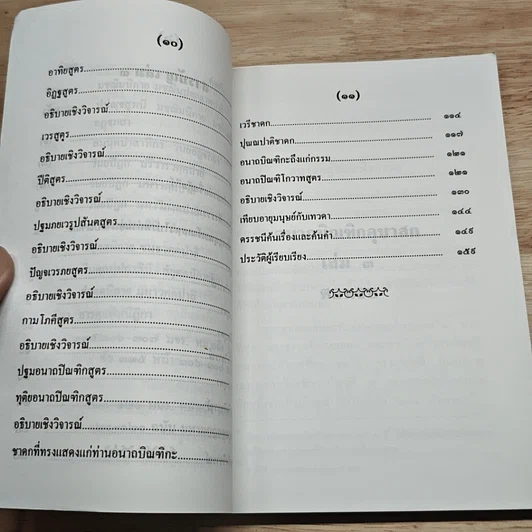 (๑๐)
อาทิยสูตร
อิฏฐสูตร
อธิบายเชิงวิจารณ์
เวรสูตร
อธิบายเชิงวิจารณ์
ปีติสูตร
อธิบายเชิงวิจารณ์
ปฐมภยเวรูปสันตสูตร
อธิบายเชิงวิจารณ์
ปัญจเวรภยสูตร
อธิบายเชิงวิจารณ์
กามโภคีสูตร
อธิบายเชิงวิจารณ์
ปฐมอนาถปิณฑิกสูตร
ทุติยอนาถปิณฑิกสูตร
อธิบายเชิงวิจารณ์
ชาดกที่ทรงแสดงแก่ท่านอนาถบิณฑิกะ
(๑๑)
เวรีชาดก ๑๑๔
ปุณณปาติชาดก ๑๑๗
อนาถบิณฑิกะถึงแก่กรรม ๑๒๑
อนาถปิณฑิโกวาทสูตร ๑๒๑
อธิบายเชิงวิจารณ์ ๑๓๐
เทียบอายุมนุษย์กับเทวดา ๑๔๔
ดรรชนีค้นเรื่องและค้นคำ ๑๔๙
ประวัติผู้เรียบเรียง ๑๕๙